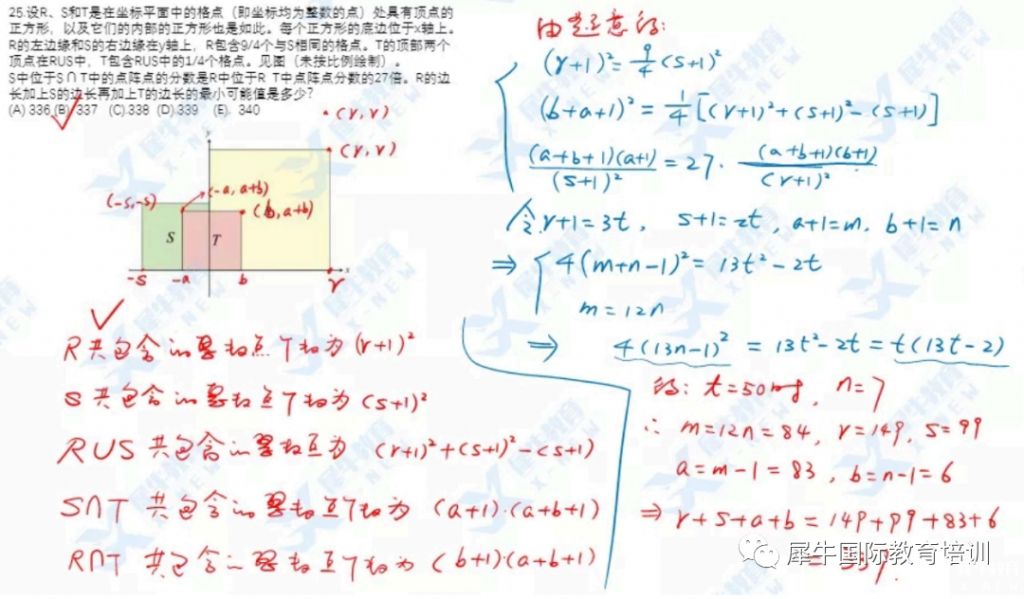 25.设R、S和T是在坐标平面中的格点（即坐标均为整数的点）处具有顶点的
正方形，以及它们的内部的正方形也是如此。每个正方形的底边位于x轴上。
R的左边缘和S的右边缘在y轴上，R包含9/4个与S相同的格点。T的顶部两个
顶点在RUS中，T包含RUS中的1/4个格点。见图（未按比例绘制）.
S中位于S∩T中的点阵点的分数是R中位于R T中点阵点分数的27倍。R的边
长加上S的边长再加上T的边长的最小可能值是多少?
(A) 336 (B) 337 (C).338 (D).339 (E). 340
(r, r)
y
(r, r)
(-s, -s)
(-a, a+b)
(b, a+b)
S
T
-s
-a
b
r
x
R共包含的整数点个数为(r+1)²
S共包含的整数点个数为(s+1)²
RUS 共包含的整数点为 (r+1)²+(s+1)²-(s+1)
S∩T 共包含的整数点个数为 (a+1)·(a+b+1)
R∩T 共包含的整数点个数为 (b+1)(a+b+1)
由题意得:
(r+1)²=9/4(s+1)²
(b+a+1)²=1/4[(r+1)²+(s+1)²-(s+1)]
(a+b+1)(a+1)/(s+1)²=27·(a+b+1)(b+1)/(r+1)²
令r+1=3t, s+1=2t, a+1=m, b+1=n
⇒ 4(m+n-1)²=13t²-2t
m=12n
⇒ 4(13n-1)²=13t²-2t=t(13t-2)
得: t=50时, n=7
∴ m=12n=84, r=149, s=99
a=m-1=83, b=n-1=6
⇒ r+s+a+b=149+99+83+6
犀牛国际教育培训
犀牛教育
X-NEW